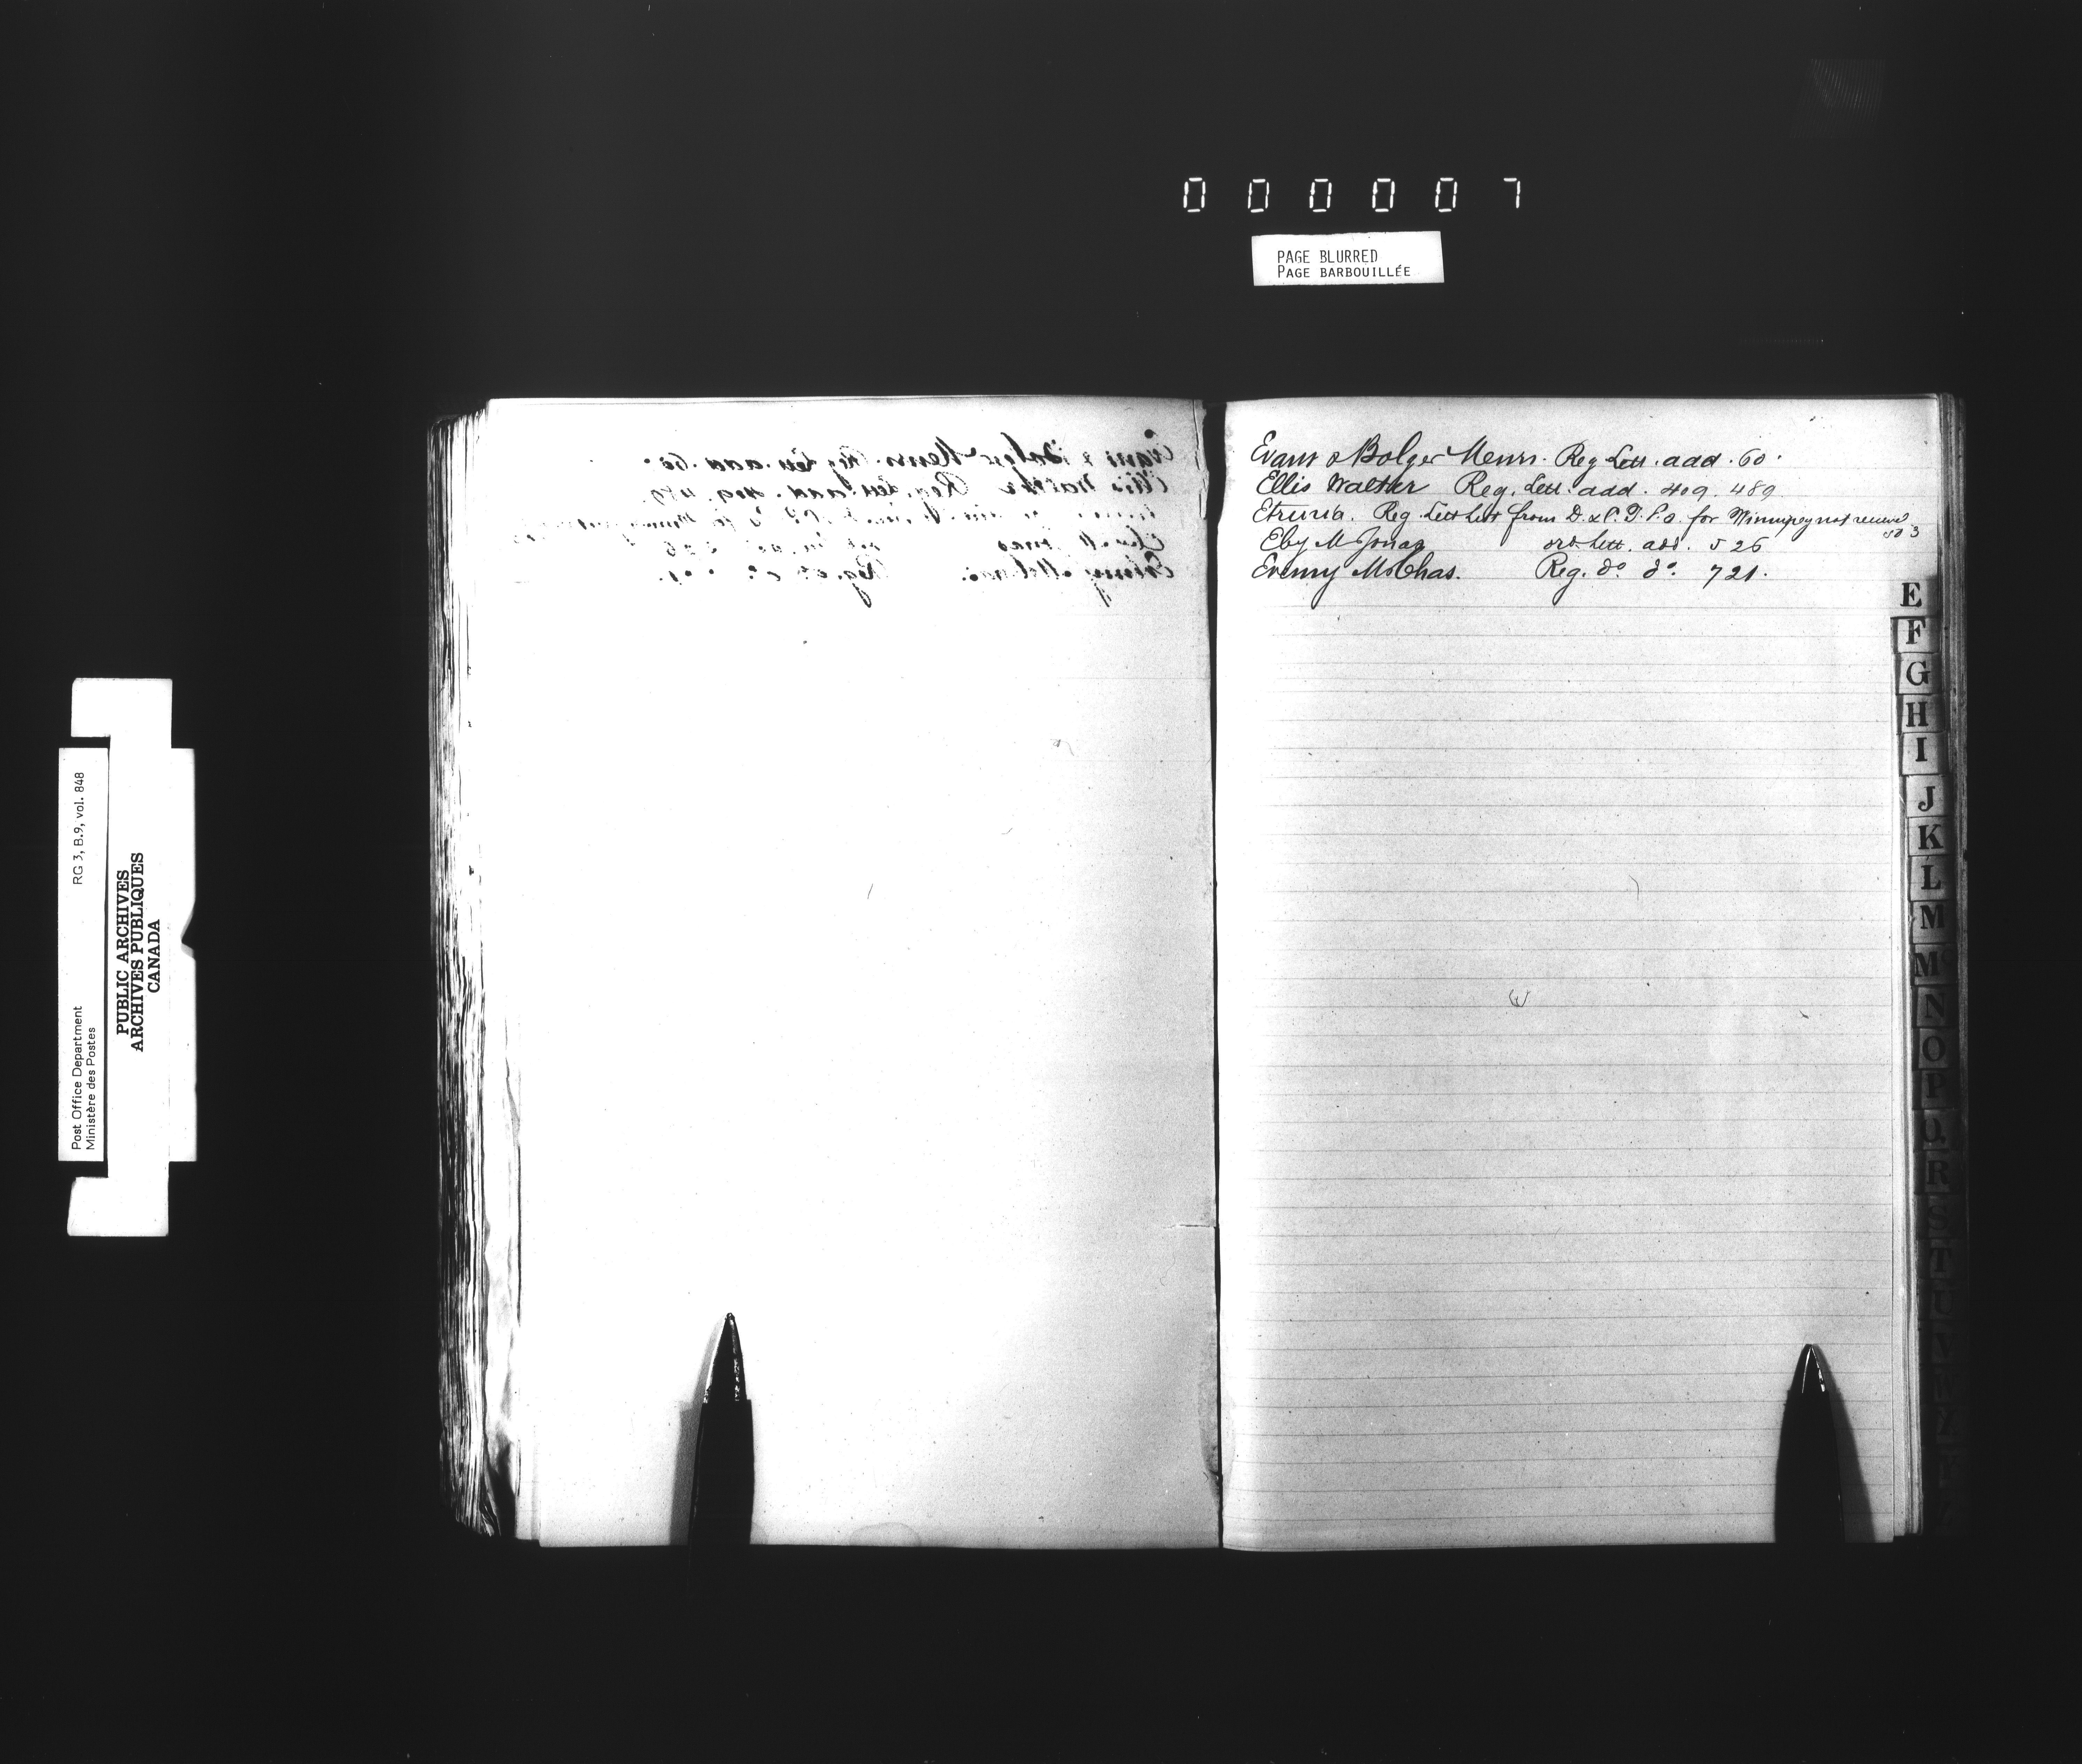 0 0 0 0 0 7
PAGE BLURRED
PAGE BARBOUILLÉE
Evans & Bolger Messrs. Reg Lett. add. 60.
Ellis Walter Reg. Lett. add. 409. 489
Etruria. Reg Lett from D. & P. for Winnipeg not received
503
Eby M Jonas ord. Lett. add. 526
Evenny Mr Chas. Reg. do do. 721.
E
F
G
H
I
J
K
L
M
Mc
N
O
P
Q
R
S
T
U
V
RG 3, B.9, vol. 848
Post Office Department
Ministère des Postes
PUBLIC ARCHIVES
ARCHIVES PUBLIQUES
CANADA